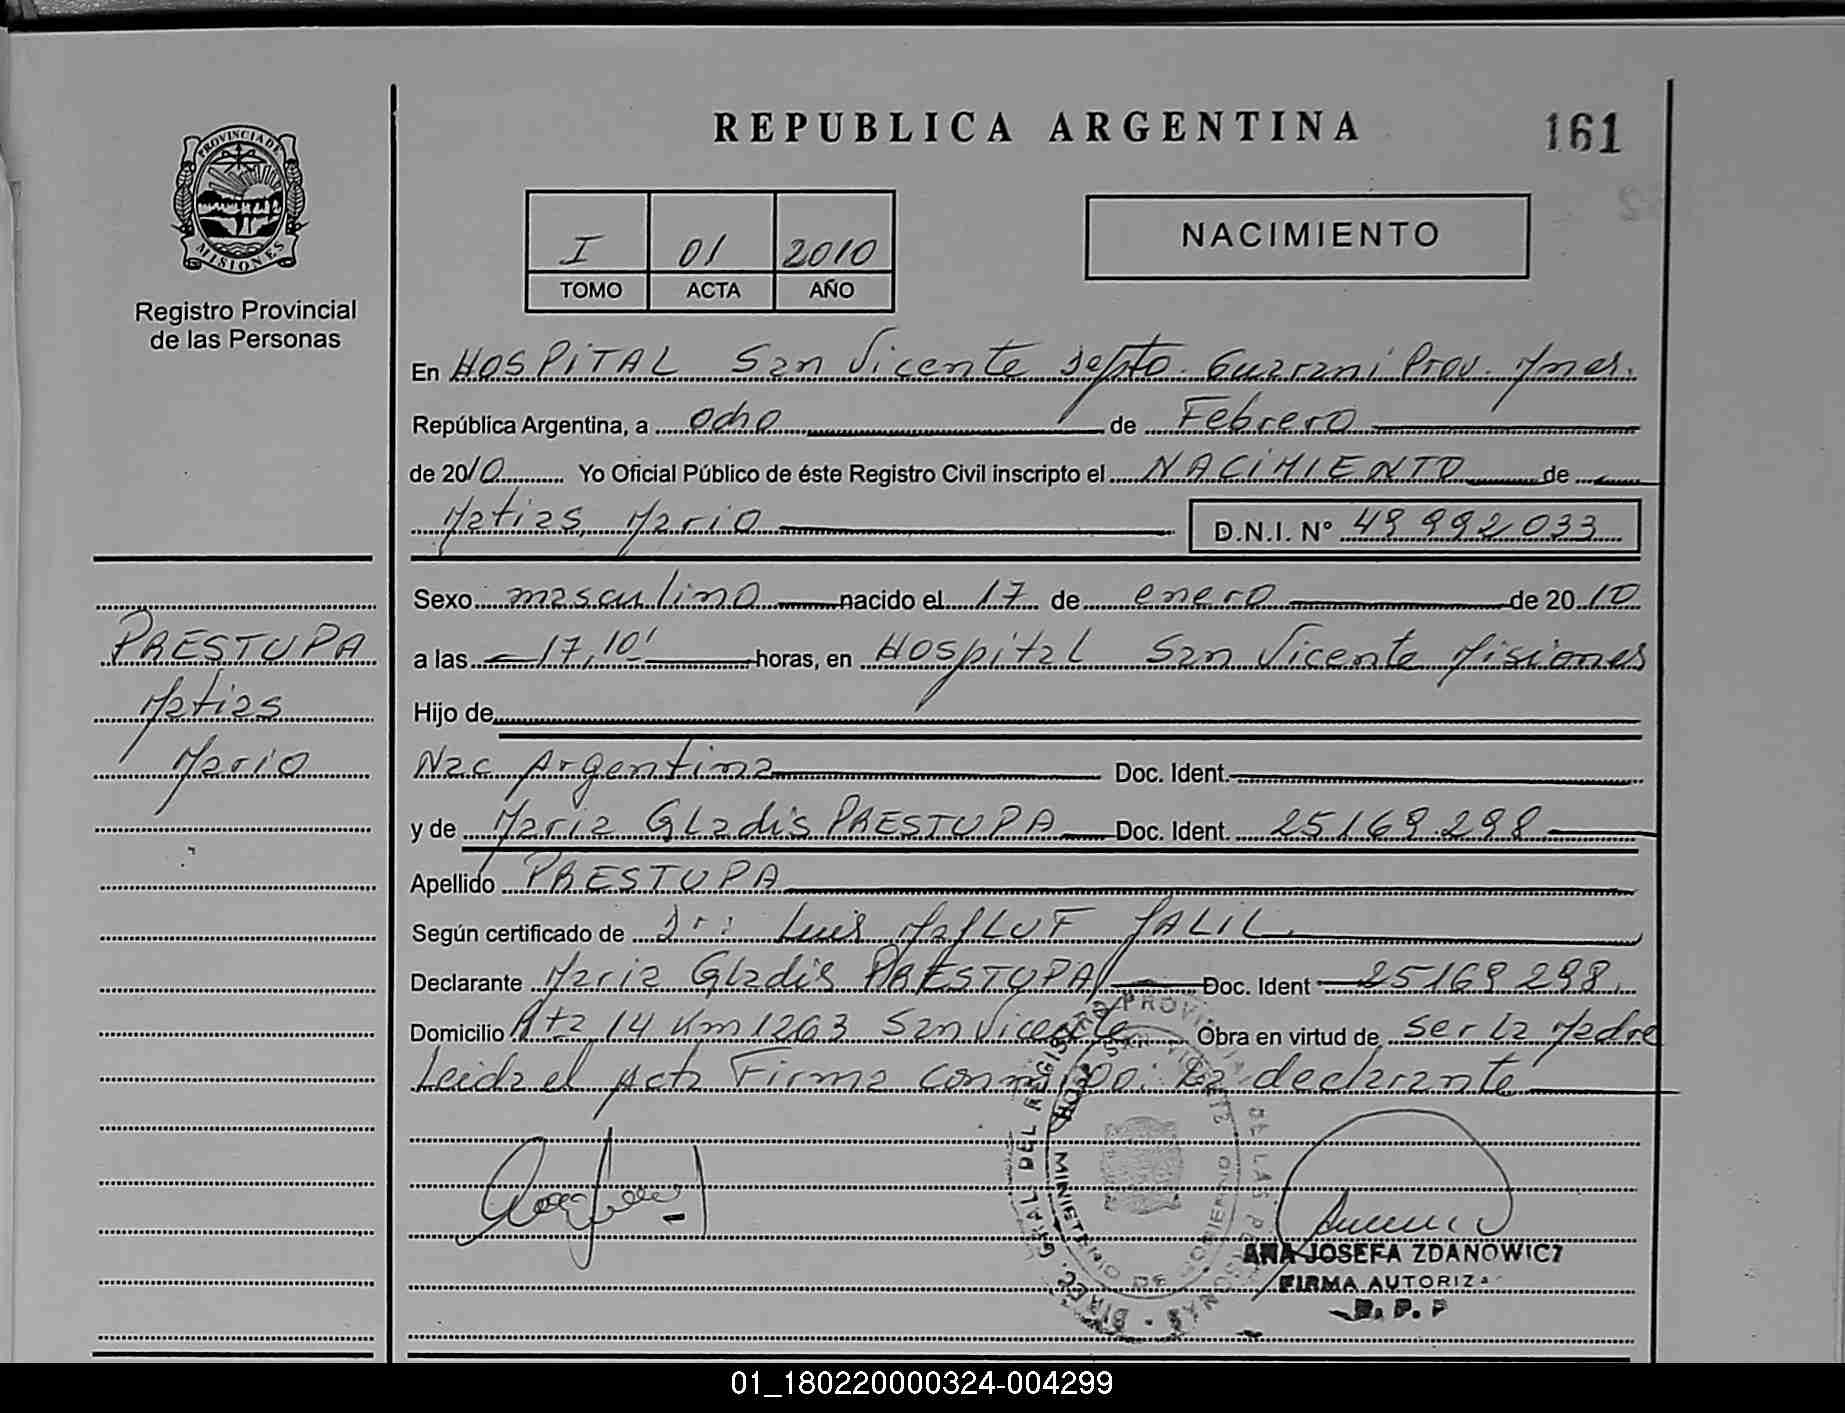 REPUBLICA ARGENTINA
161
PROVINCIA DE MISIONES
Registro Provincial
de las Personas
I 01 2010
TOMO ACTA AÑO
NACIMIENTO
En HOSPITAL San Vicente depto. Guarani Prov. Mnes.
República Argentina, a ocho de Febrero
de 2010 Yo Oficial Público de éste Registro Civil inscripto el NACIMIENTO de
Matias, Mario D.N.I. N° 49 992 033
Sexo masculino nacido el 17 de enero de 2010
PRESTUPA
a las 17,10' horas, en Hospital San Vicente Misiones
Matias
Hijo de
Mario
Nac Argentina Doc. Ident.
y de Maria Gladis PRESTUPA Doc. Ident. 25169.298
Apellido PRESTUPA
Según certificado de Dr: Luis MALUF JALIL
Declarante Maria Gladis PRESTUPA Doc. Ident 25169 298.
Domicilio Rta 14 Km 1263 San Vicente Obra en virtud de ser la Madre
Leida el Acta Firma conmigo: La declarante
DIREC. GRAL DEL REGISTRO PROVINCIAL DE LAS PERSONAS
HOSP. SAN VICENTE
MINISTERIO DE GOBIERNO
ANA JOSEFA ZDANOWICZ
FIRMA AUTORIZA
R. P. P
01_180220000324-004299